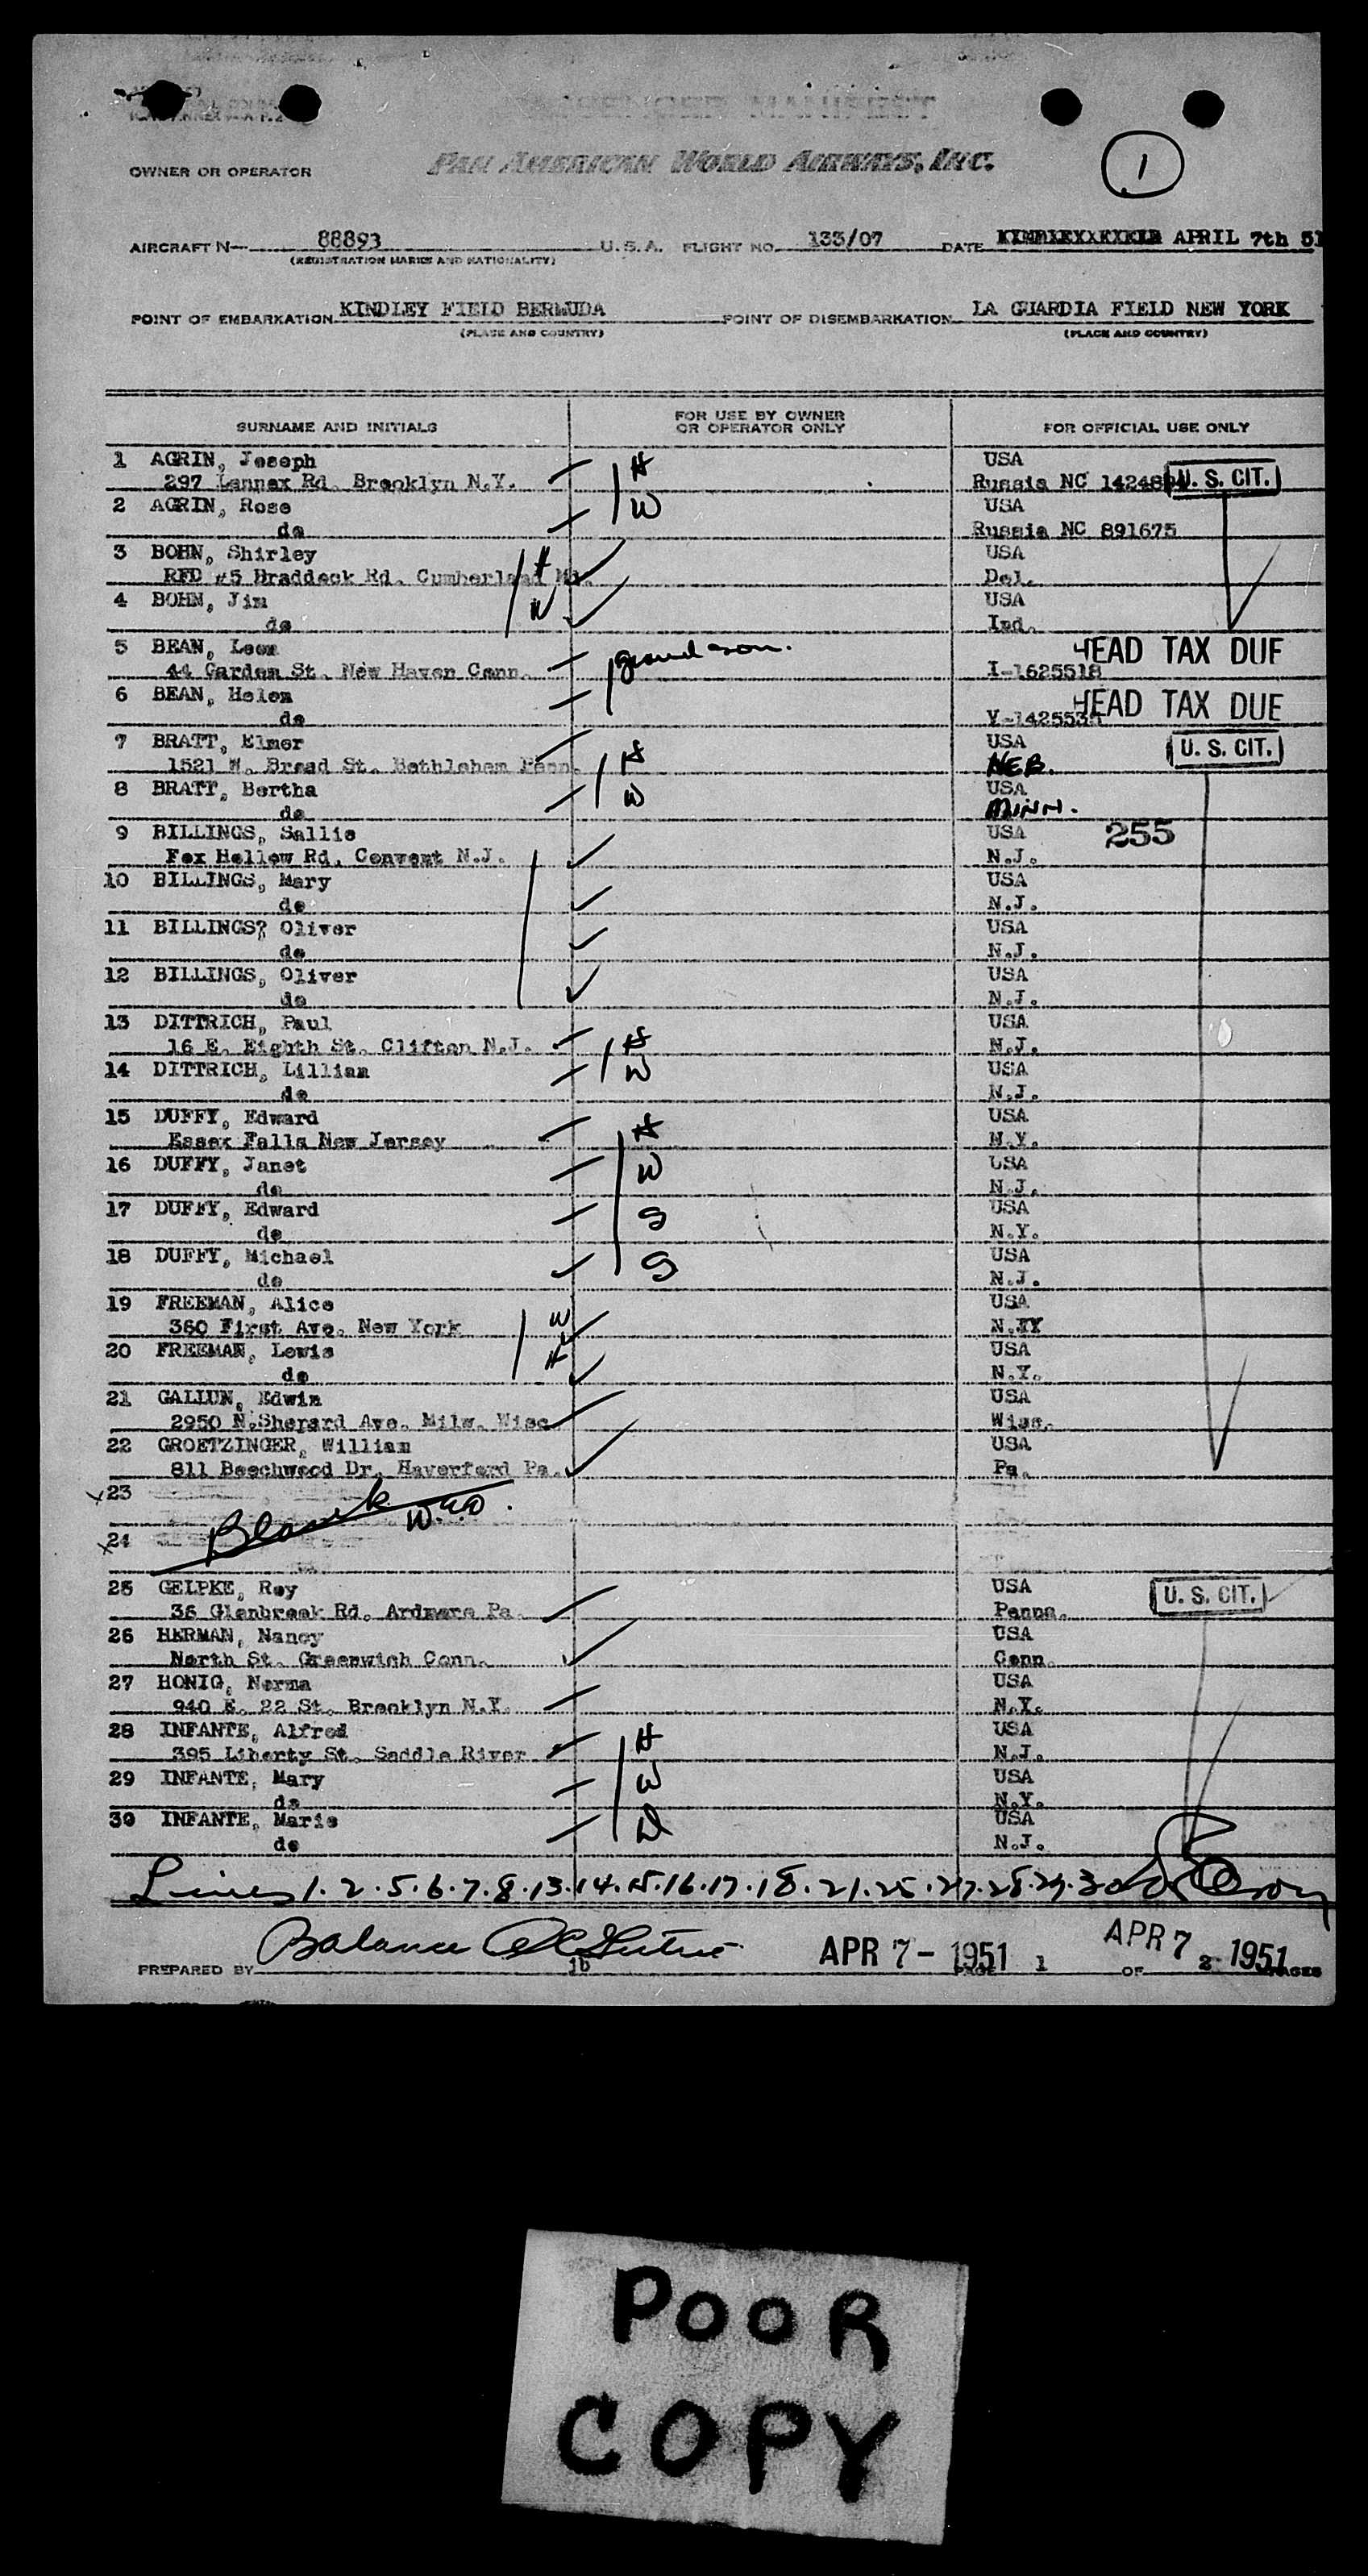 PASSENGER MANIFEST
OWNER OR OPERATOR PAN AMERICAN WORLD AIRWAYS, INC.
1
AIRCRAFT N— 88893 U.S.A. FLIGHT NO. 133/07 DATE APRIL 7th 51
(REGISTRATION MARKS AND NATIONALITY)
POINT OF EMBARKATION KINDLEY FIELD BERMUDA POINT OF DISEMBARKATION LA GUARDIA FIELD NEW YORK
(PLACE AND COUNTRY) (PLACE AND COUNTRY)
SURNAME AND INITIALS FOR USE BY OWNER OR OPERATOR ONLY FOR OFFICIAL USE ONLY
1 AGRIN, Joseph H USA
297 Lennex Rd. Brooklyn N.Y. Russia NC U. S. CIT.
2 AGRIN, Rose W USA
do Russia NC 891675
3 BOHN, Shirley H USA
RFD #5 Braddock Rd. Cumberland Md. Del.
4 BOHN, Jim W USA
do Ind.
5 BEAN, Leon grandson. HEAD TAX DUE
44 Garden St. New Haven Conn. I-1625518
6 BEAN, Helen HEAD TAX DUE
do V-1425535
7 BRATT, Elmer H USA U. S. CIT.
1521 W. Broad St. Bethlehem Penn. NEB.
8 BRATT, Bertha W USA
do MINN.
9 BILLINGS, Sallie USA 255
Fox Hollow Rd. Convent N.J. N.J.
10 BILLINGS, Mary USA
do N.J.
11 BILLINGS? Oliver USA
do N.J.
12 BILLINGS, Oliver USA
do N.J.
13 DITTRICH, Paul H USA
16 E. Eighth St. Clifton N.J. N.J.
14 DITTRICH, Lillian W USA
do N.J.
15 DUFFY, Edward H USA
Essex Falls New Jersey N.Y.
16 DUFFY, Janet W USA
do N.J.
17 DUFFY, Edward S USA
do N.Y.
18 DUFFY, Michael S USA
do N.J.
19 FREEMAN, Alice W USA
360 First Ave. New York N.XY
20 FREEMAN, Lewis H USA
do N.Y.
21 GALLUN, Edwin USA
2950 N.Shepard Ave. Milw. Wisc Wisc.
22 GROETZINGER, William USA
811 Beechwood Dr. Haverford Pa. Pa.
x23
Blank
x24
25 GELPKE, Roy USA U. S. CIT.
36 Glenbrook Rd. Ardmore Pa. Penna.
26 HERMAN, Nancy USA
North St. Greenwich Conn. Conn.
27 HONIG, Norma USA
940 E. 22 St. Brooklyn N.Y. N.Y.
28 INFANTE, Alfred H USA
395 Liberty St. Saddle River N.J.
29 INFANTE, Mary W USA
do N.Y.
30 INFANTE, Marie D USA
do N.J.
Lines 1.2.5.6.7.8.13.14.15.16.17.18.21.25.27.28.29.30
Balance
PREPARED BY APR 7 - 1951 PAGE 1 OF 2 PAGES
APR 7 1951
POOR
COPY